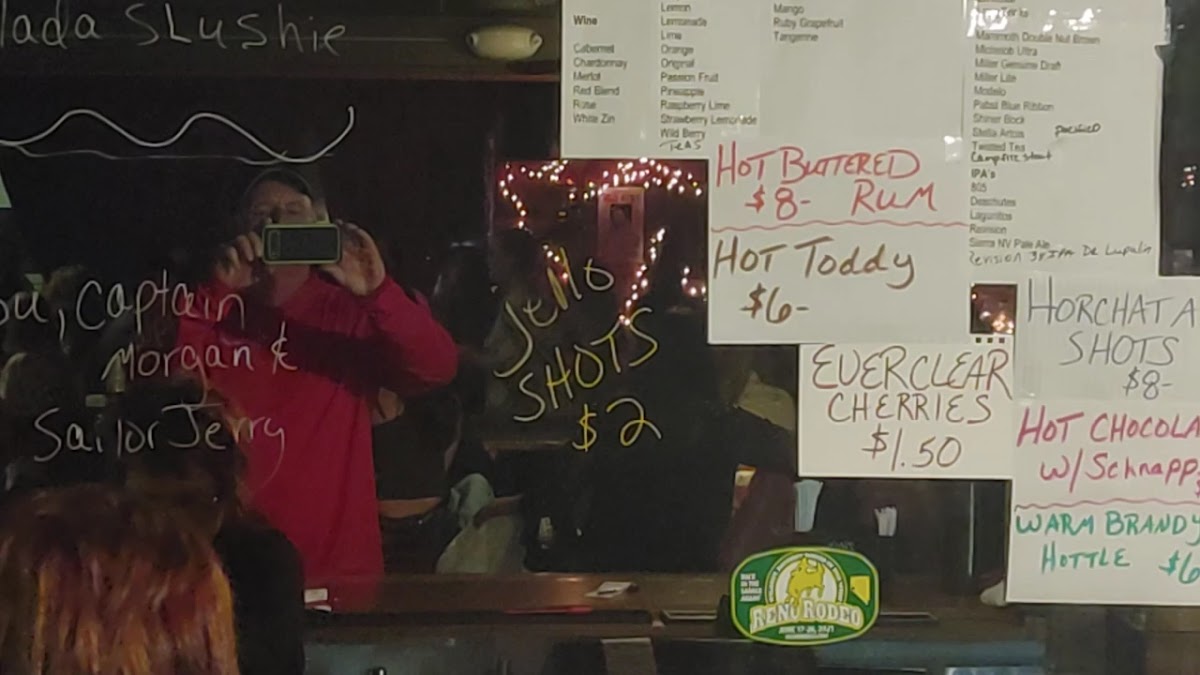 lada Slushie
ou, Captain
Morgan &
Sailor Jerry
Jello
SHOTS
$2
Wine
Cabernet
Chardonnay
Merlot
Red Blend
Rose
White Zin
Lemon
Lemonade
Lime
Orange
Original
Passion Fruit
Pineapple
Raspberry Lime
Strawberry Lemonade
Wild Berry
TEAS
Mango
Ruby Grapefruit
Tangerine
Mammoth Double Nut Brown
Michelob Ultra
Miller Genuine Draft
Miller Lite
Modelo
Pabst Blue Ribbon
Shiner Bock
Stella Artois
Twisted Tea
Campfire stout
IPA's
805
Deschutes
Lagunitas
Revision
Sierra NV Pale Ale
Revision 3x IPA De Lupulin
HOT BUTTERED
$8- RUM
HOT TODDY
$6-
EVERCLEAR
CHERRIES
$1.50
HORCHATA
SHOTS
$8-
HOT CHOCOLA
W/ Schnapp
WARM BRANDY
HOTTLE $6
RENO RODEO
JUNE 17-26, 2021